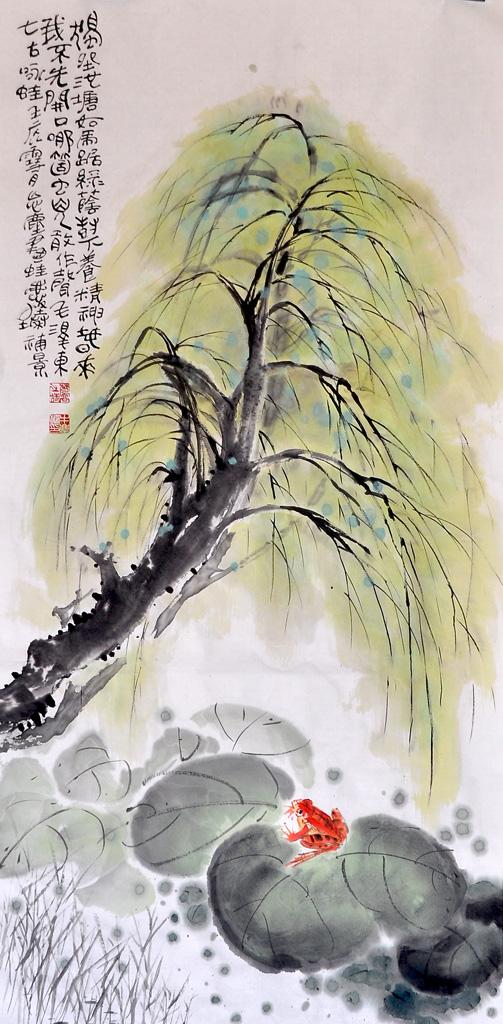 獨坐池塘如虎踞綠蔭樹下養精神春來
我不先開口哪箇虫兒敢作聲毛澤東
七古咏蛙壬辰雪月忘塵畫蛙補景